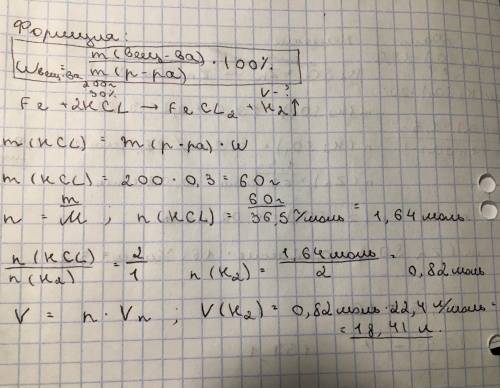 Формула:
wвещ-ва = m(вещ-ва) / m(р-ра) · 100%
200г
30% V-?
Fe + 2HCL → FeCL2 + H2↑
m(HCL) = m(р-ра) · w
m(HCL) = 200 · 0,3 = 60г
n = m/M ; n(HCL) = 60г / 36,5г/моль = 1,64 моль.
n(HCL) / n(H2) = 2/1 n(H2) = 1,64 моль / 2 = 0,82 моль
V = n · Vn ; V(H2) = 0,82 моль · 22,4 л/моль =
= 18,41 л.